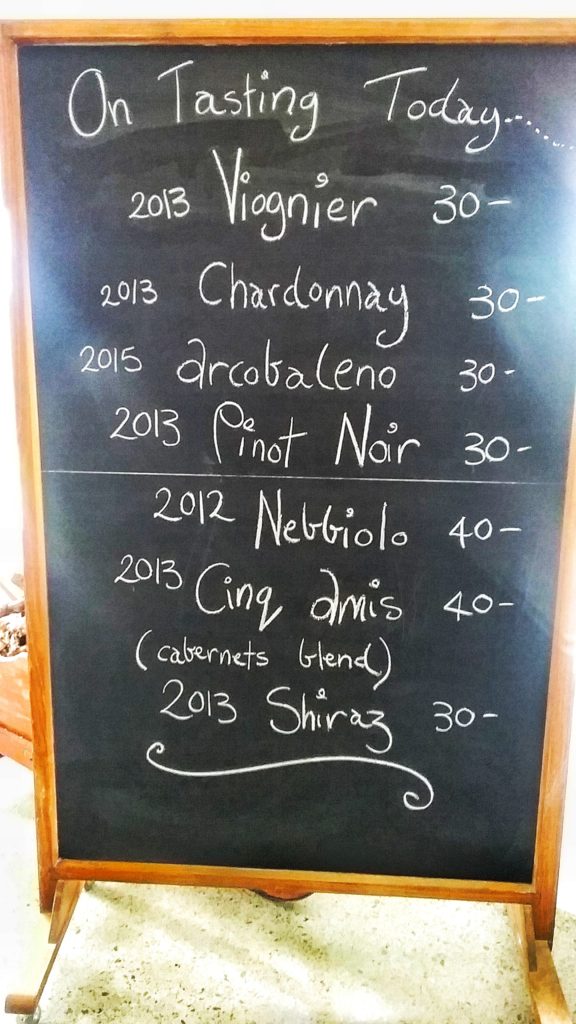 On Tasting Today.......
2013 Viognier 30-
2013 Chardonnay 30-
2015 arcobaleno 30-
2013 Pinot Noir 30-
2012 Nebbiolo 40-
2013 Cinq amis 40-
(cabernets blend)
2013 Shiraz 30-